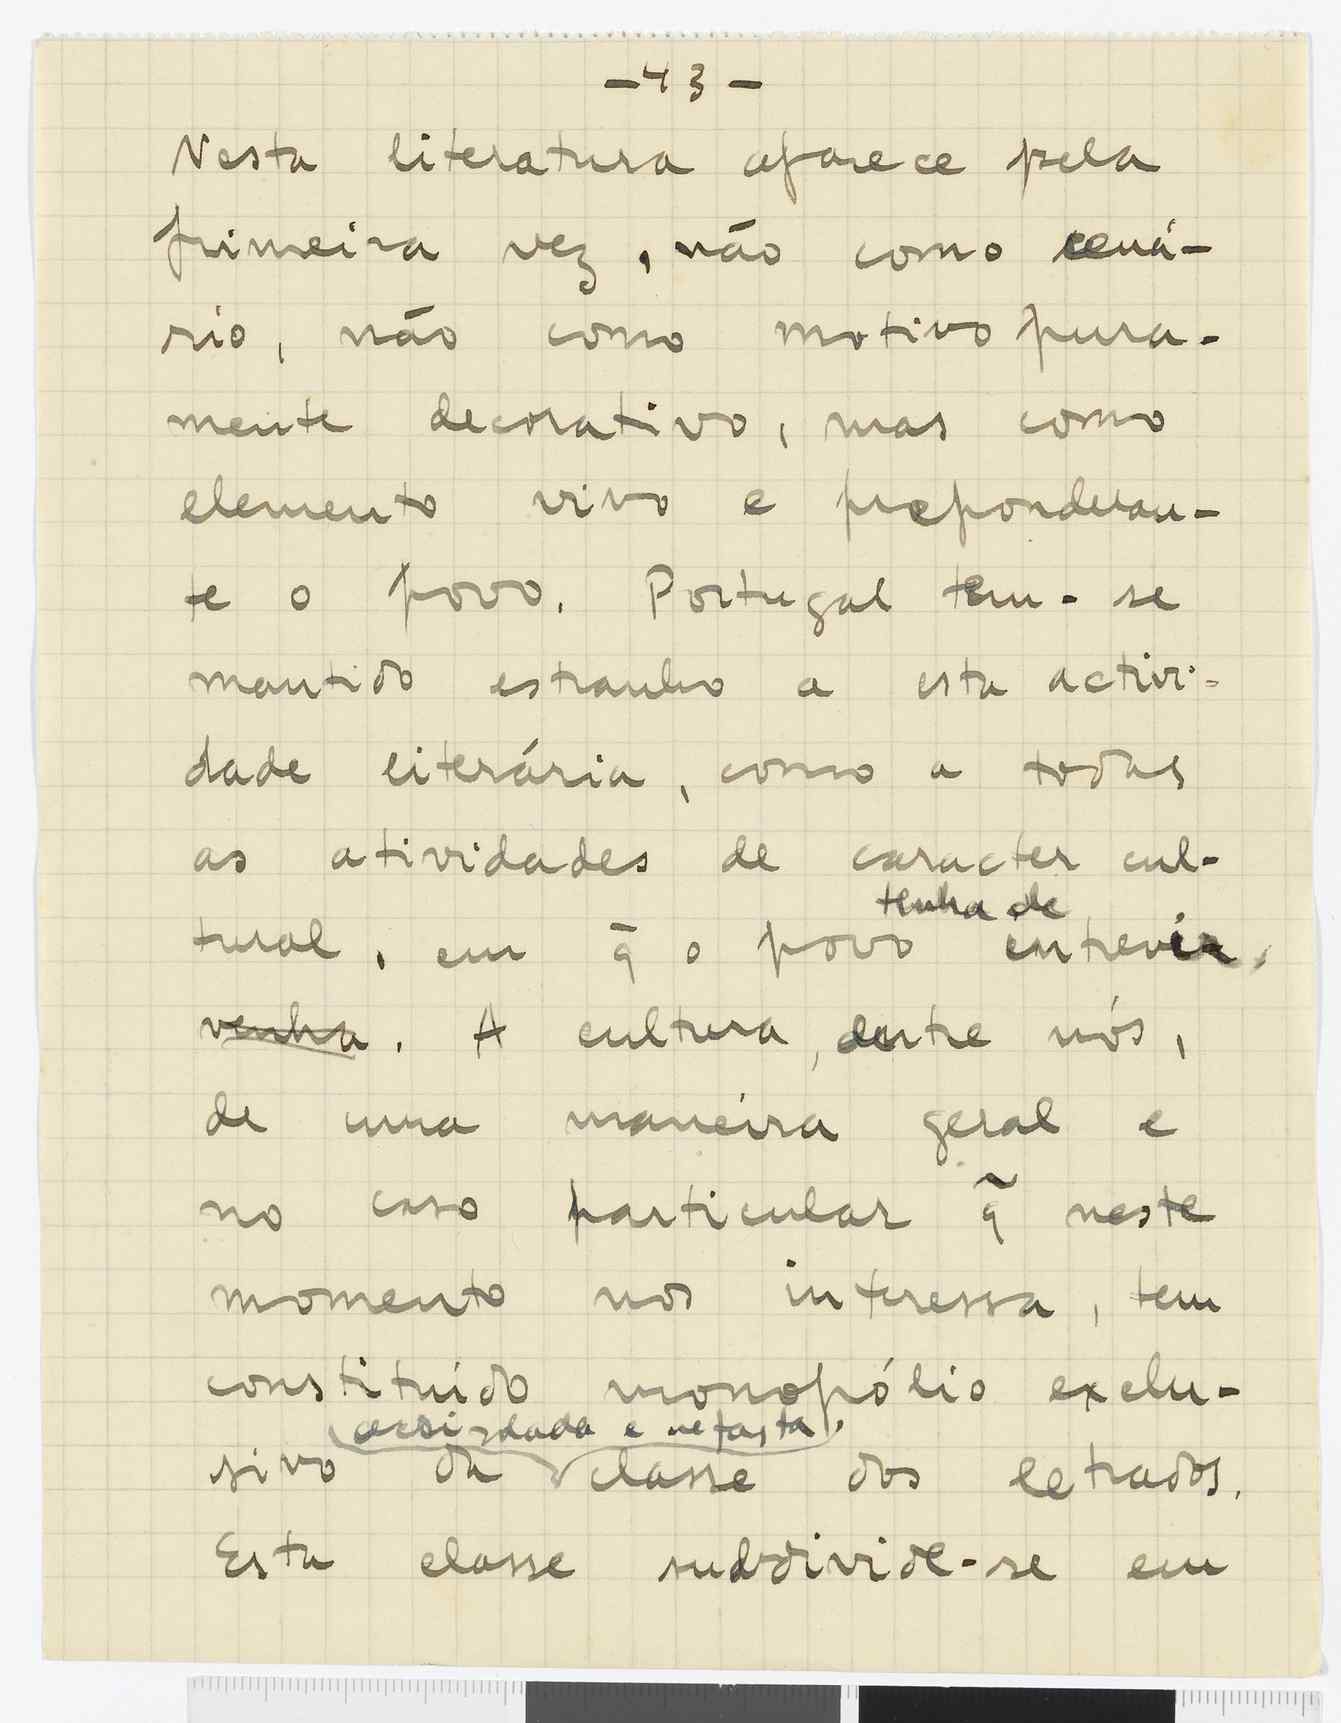 -43-
Nesta literatura aparece pela
primeira vez, não como cená-
rio, não como motivo pura-
mente decorativo, mas como
elemento vivo e preponderan-
te o povo. Portugal tem-se
mantido estranho a esta activi-
dade literária, como a todas
as atividades de caracter cul-
tural, em q̃ o povo
tenha de
entrevir,
venha. A cultura, dentre nós,
de uma maneira geral e
no caso particular q̃ neste
momento nos interessa, tem
constituído monopólio exclu-
e nefasta
sivo da classe dos letrados.
Esta classe subdivide-se em